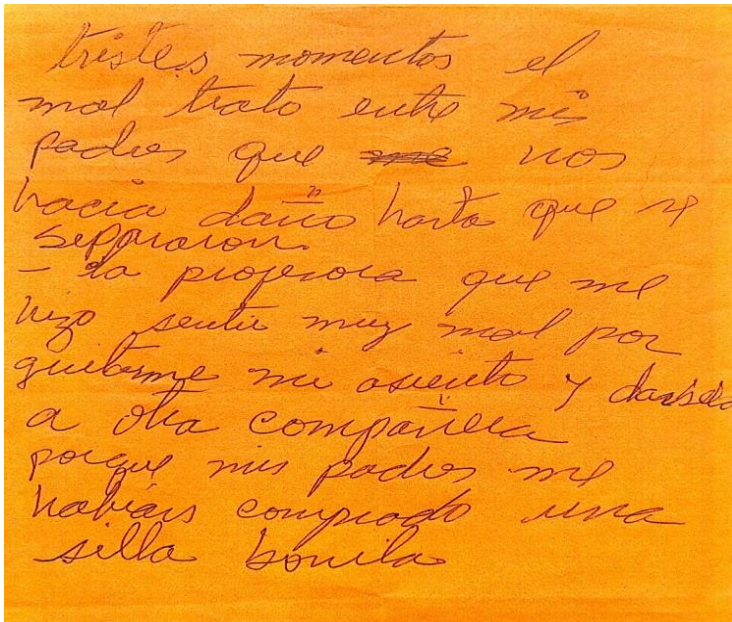 tristes momentos el
mal trato entre mis
padres que me nos
hacia daño hasta que se
separaron.
- la profesora que me
hizo sentir muy mal por
quitarme mi asiento y darselo
a otra compañera
porque mis padres me
habian comprado una
silla bonita